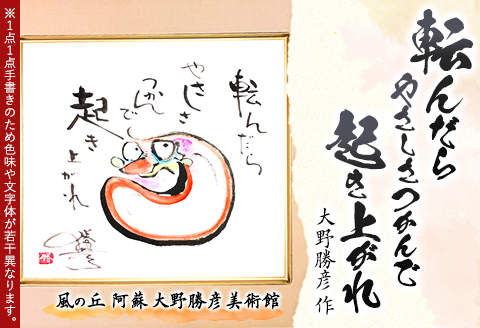 転んだら
やさしさつかんで
起き上がれ
大野勝彦 作
転んだら
やさしさ
つかんで
起き上がれ
風の丘 阿蘇 大野勝彦美術館
※1点1点手書きのため色味や文字体が若干異なります。